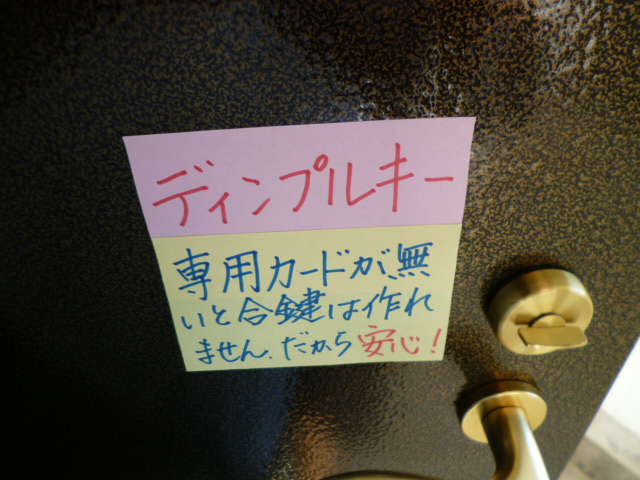 ディンプルキー
専用カードが、無
いと合鍵は作れ
ません.だから安心!